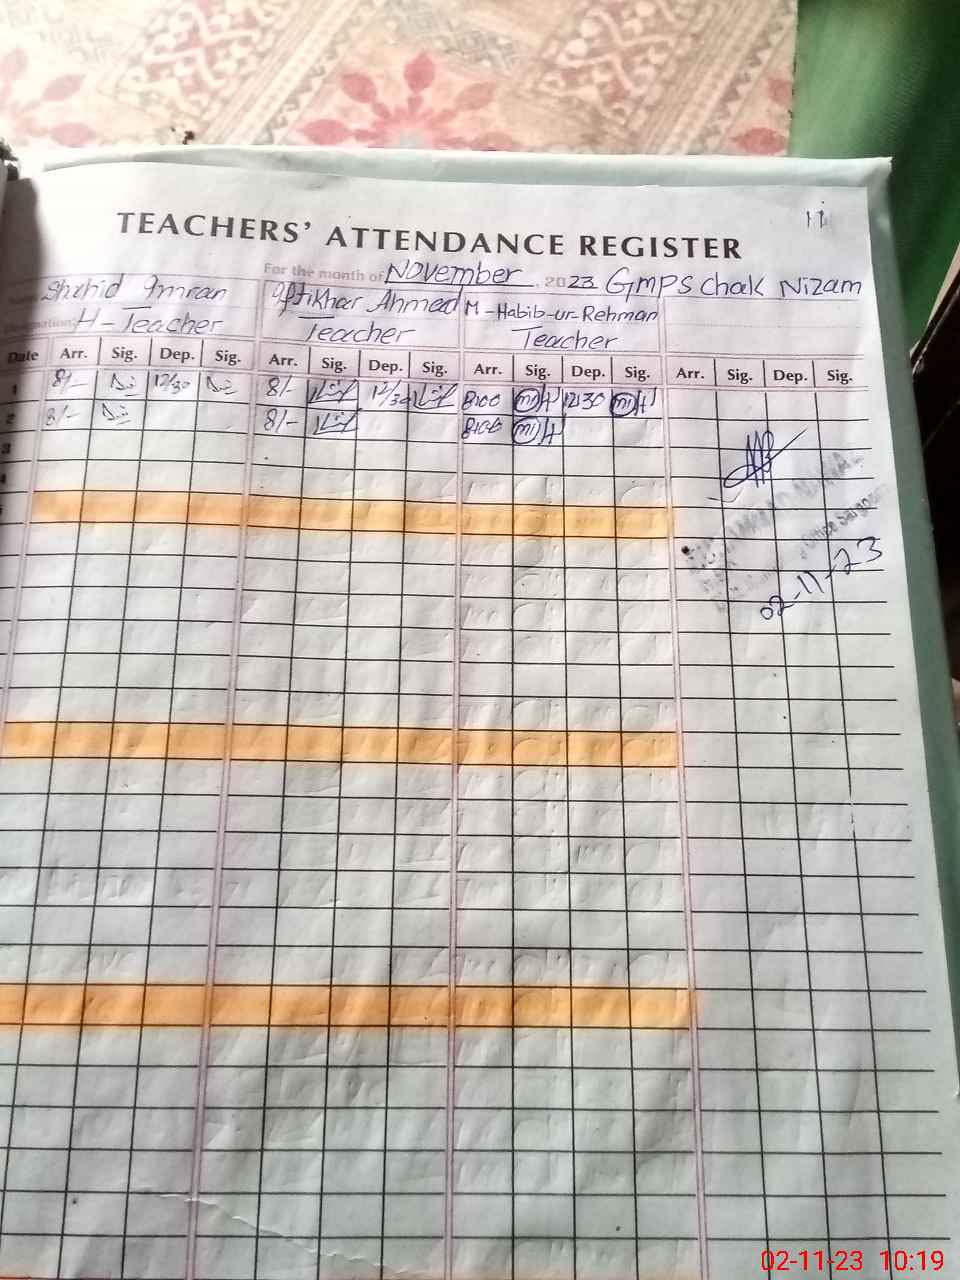 TEACHERS' ATTENDANCE REGISTER
For the month of November, 2023 GMPS Chak Nizam
Shahid Imran Iftikhar Ahmed M-Habib-ur-Rehman
Designation: H-Teacher Teacher Teacher
Date Arr. Sig. Dep. Sig. Arr. Sig. Dep. Sig. Arr. Sig. Dep. Sig. Arr. Sig. Dep. Sig.
1 8/- 12/30 8/- 12/30 8:00 12:30
2 8/- 8/- 8:00
3
4
Office Sargodha
02-11-23
02-11-23 10:19